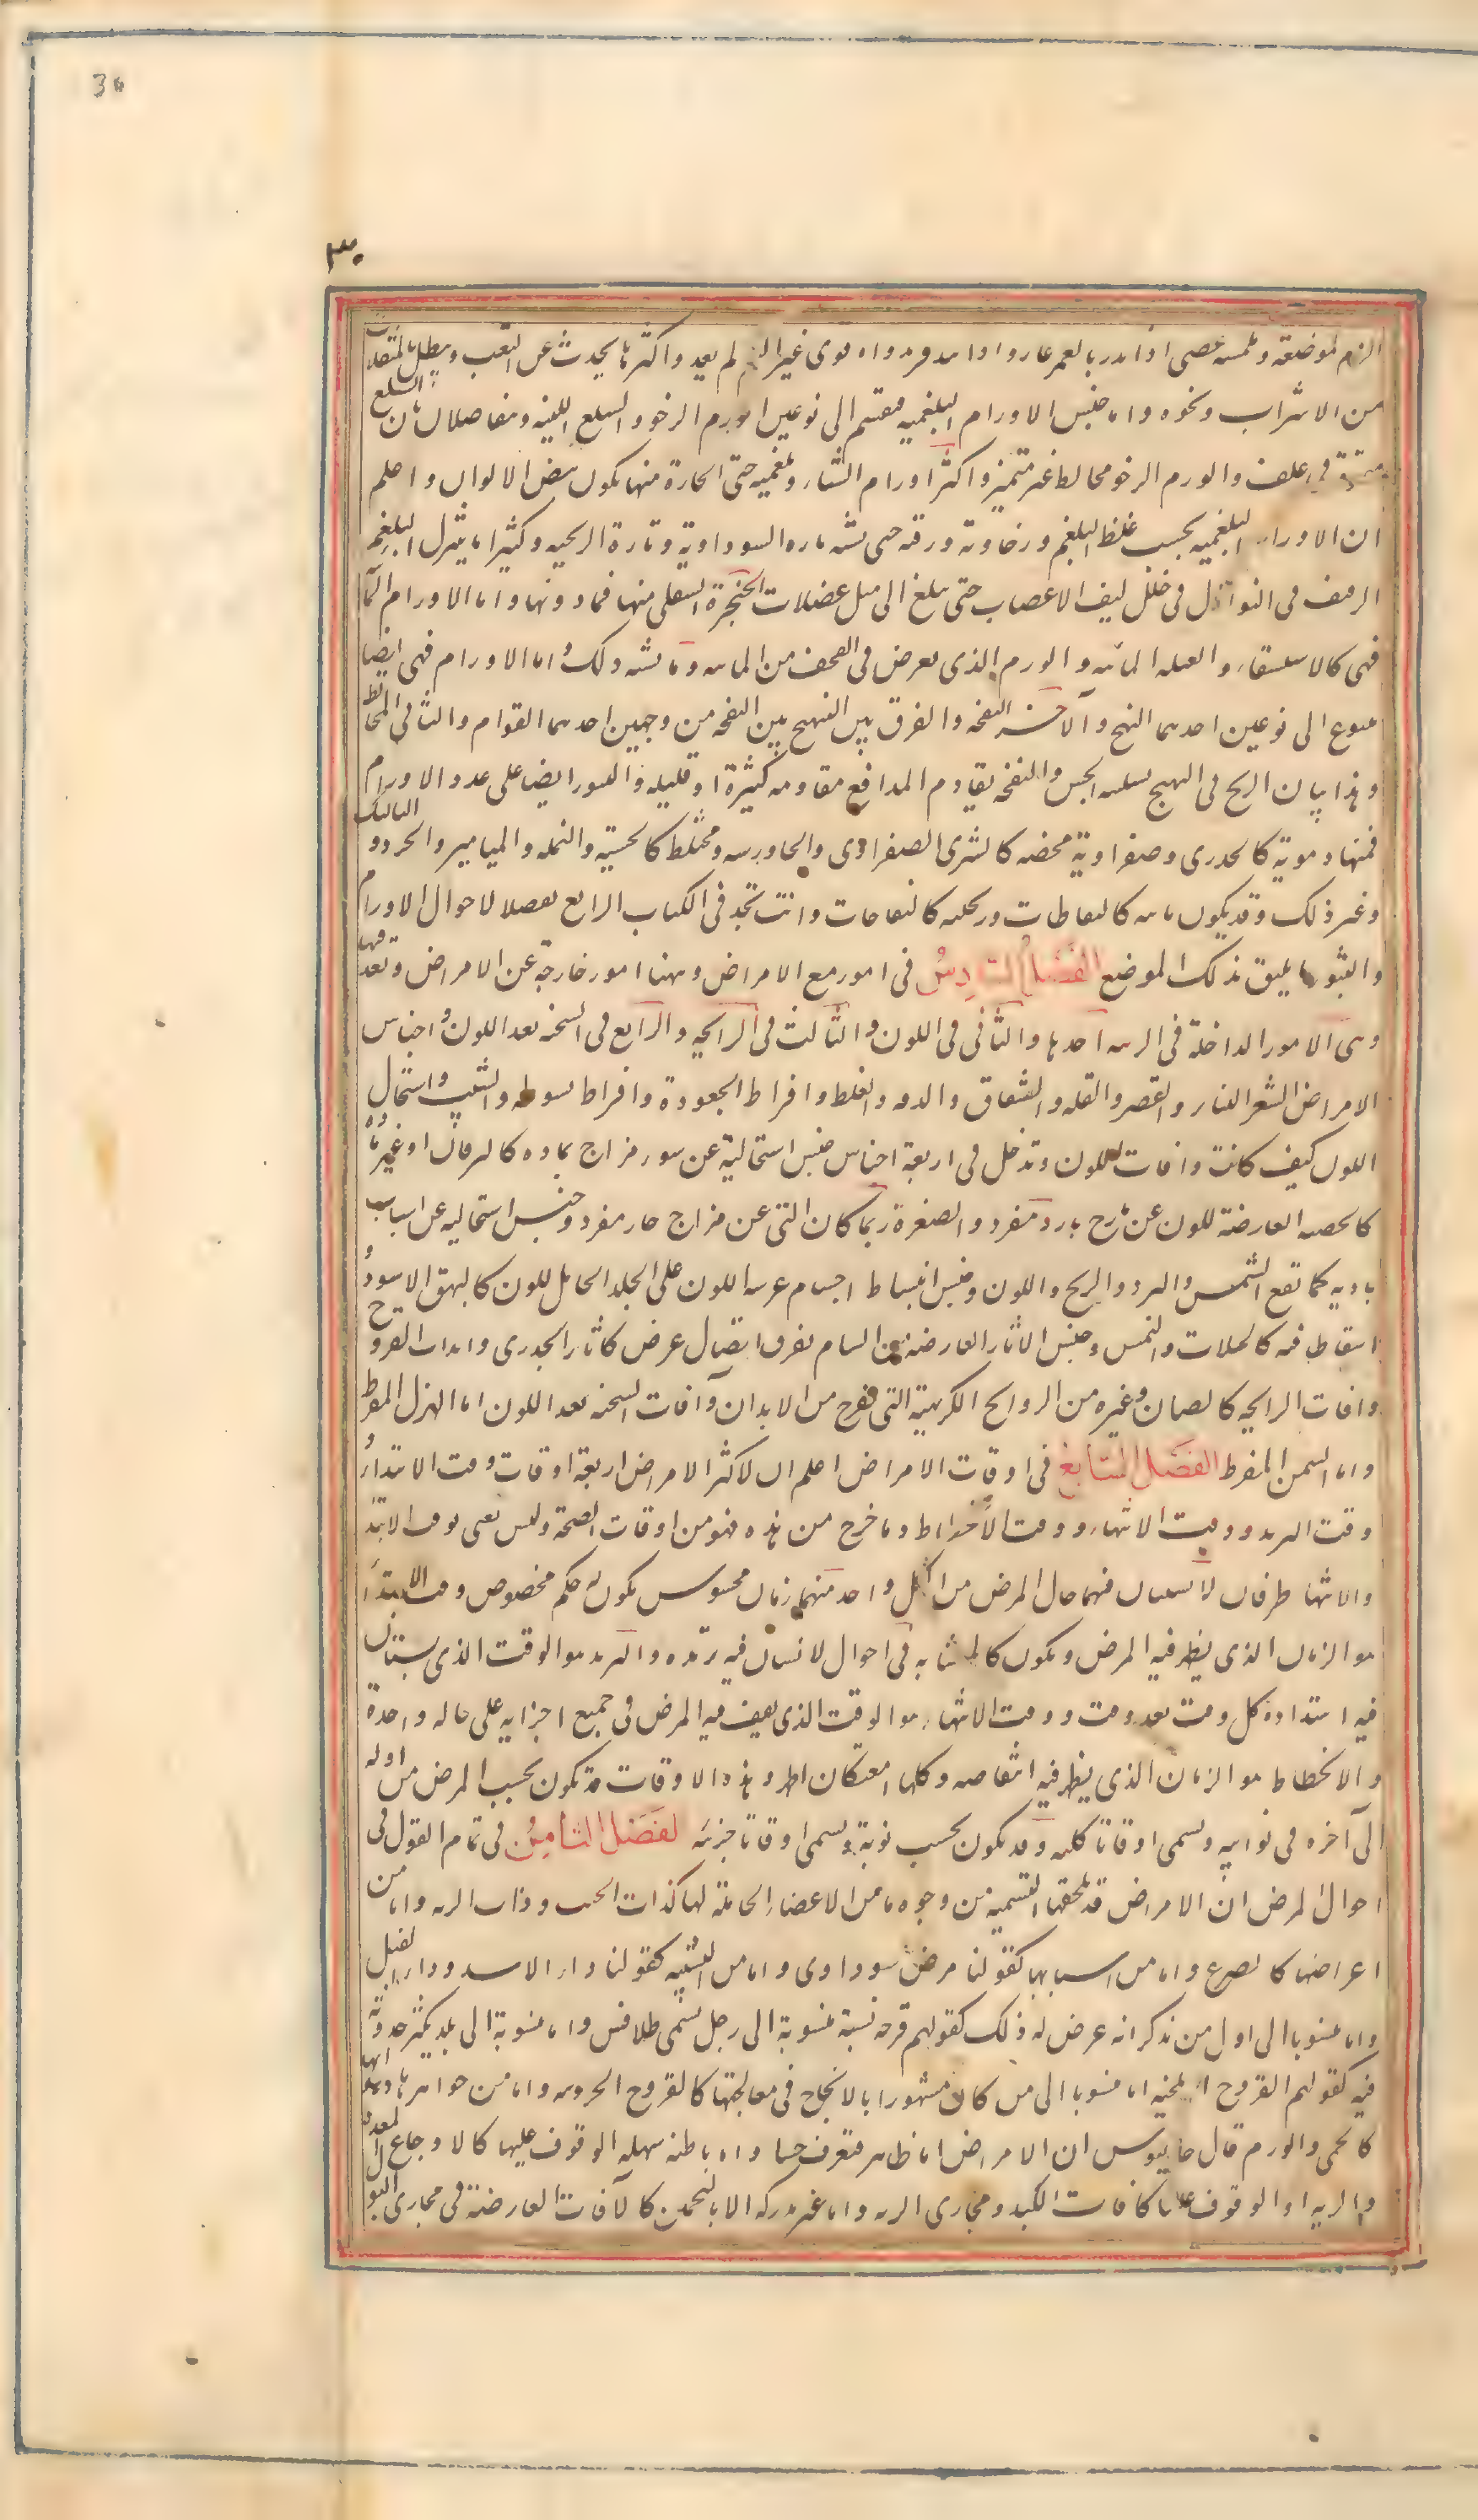 30
٣٠
الزم لموضعه ولمسه عصبى اذا غير الزم لم يعد واكثر ما يحدث عن التعب ويبطل بالمثقلات
من الاشراب ونحوه واما جنس الاورام البلغميه فينقسم الى نوعين الورم الرخو والسلع اللينه وينفاصلان بان السلع
متميزة فى غلف والورم الرخو مخالط غير متميز واكثر اورام الشتاء بلغميه حتى الحارة منها يكون بيض الالوان واعلم
ان الاورام البلغميه بحسب غلظ البلغم ورخاوته ورقته حتى يشبه تاره السوداوية وتارة الريحيه وكثيرا ما ينزل البلغم
الرقيق فى النوازل فى خلل ليف الاعصاب حتى يبلغ الى مثل عضلات الحنجرة السفلى منها فما دونها واما الاورام المائية
فهى كالاستسقاء والقيله المائيه والورم الذى يعرض فى القحف من المائيه وما يشبه ذلك واما الاورام فهى ايضا
تتنوع الى نوعين احدهما التهيج والآخر النفخه والفرق بين التهيج وبين النفخه من وجهين احدهما القوام والثانى المخالطة
وهذا بيان الريح فى التهيج والنفخه يقاوم المدافع مقاومه كثيرة او قليله والبثور ايضا على عدد الاورام
فمنها دمويه كالجدرى وصفراوية محضه كالشرى الصفراوى والجاورسيه ومختلط كالحصبة والنمله والمسامير والجرب والثاليل
وغير ذلك وقد يكون مائيه كالنفاطات وريحيه كالنفاخات وانت تجد فى الكتاب الرابع تفصيلا لاحوال الاورام
والبثور ما يليق بذلك الموضع الفصل السادس فى امور مع الامراض وههنا امور خارجة عن الامراض وتعد فيها
وهى الامور الداخلة فى الزينه احدها والثانى فى اللون والثالث فى الرايحه والرابع فى السحنه بعد اللون واجناس
الامراض الشعر التناثر والقصر والقله والشقاق والدقه والغلظ وافراط الجعودة وافراط السبوطه والشيب واستحال
اللون كيف كانت وافات اللون وتدخل فى اربعة اجناس جنس استحالية عن سوء مزاج بماده كاليرقان او غير ماده
كالحصبه العارضة للون عن مزاج بارد مفرد والصفرة ربما كان التى عن مزاج حار مفرد وجنس استحاليه عن اسباب
باديه كما تقع الشمس والبرد والريح واللون وجنس انبساط اجسام غريبه اللون على الجلد الحامل للون كالبهق الاسود و
التقاطا فيه كالخيلان والنمش وجنس الاثار العارضة من التيام تفرق اتصال عرض كاثار الجدرى واندمال القروح
وافات الرايحه كالصنان وغيره من الروايح الكريهة التى تفوح من الابدان وافات السحنه بعد اللون اما الهزال المفرط
واما السمن المفرط الفصل السابع فى اوقات الامراض اعلم ان لاكثر الامراض اربعة اوقات وقت الابتداء و
وقت التزيد ووقت الانتهاء ووقت الانحطاط وما خرج من هذه فهو من اوقات الصحة وليس نعنى بوقت الابتداء
والانتهاء طرفان لا يستبان فيهما حال المرض بل لكل واحد منهما زمان محسوس يكون له حكم مخصوص ووقت الابتداء
هو الزمان الذى يظهر فيه المرض ويكون كالمتشابه فى احوال لا يستبان فيه تزيده والتزيد هو الوقت الذى يستبان
فيه اشتداده كل وقت بعد وقت ووقت الانتهاء هو الوقت الذى يقف فيه المرض فى جميع اجزايه على حاله واحدة
والانحطاط هو الزمان الذى يظهر فيه انتقاصه وكلما امعن كان اظهر وهذه الاوقات قد تكون بحسب المرض من اوله
الى آخره فى نوايبه ويسمى اوقاتا كليه وقد يكون بحسب نوبة ويسمى اوقاتا جزئيه الفصل الثامن فى تمام القول فى
احوال المرض ان الامراض قد تلحقها التسميه من وجوه اما من الاعضاء الحاملة لها كذات الجنب وذات الريه واما من
اعراضها كالصرع واما من اسبابها كقولنا مرض سوداوى واما من التشبيه كقولنا داء الاسد وداء الفيل
واما منسوبا الى اول من يذكر انه عرض له ذلك كقولهم قرحه نسبة منسوبة الى رجل يسمى طلافس واما منسوبة الى بلد يكثر حدوثها
فيه كقولهم القروح البلخيه اما منسوبا الى من كان مشهورا بالانجاح فى معالجتها كالقروح الخيرونيه واما من جواهرها وذواتها
كالحمى والورم قال جالينوس ان الامراض اما ظاهر فتعرف حسا واما باطنه سهله الوقوف عليها كالاوجاع المعدة
والريه او الوقوف عليها كافات الكبد ومجارى الريه واما غير مدركه الا بالتخمين كالافات العارضة فى مجارى البول